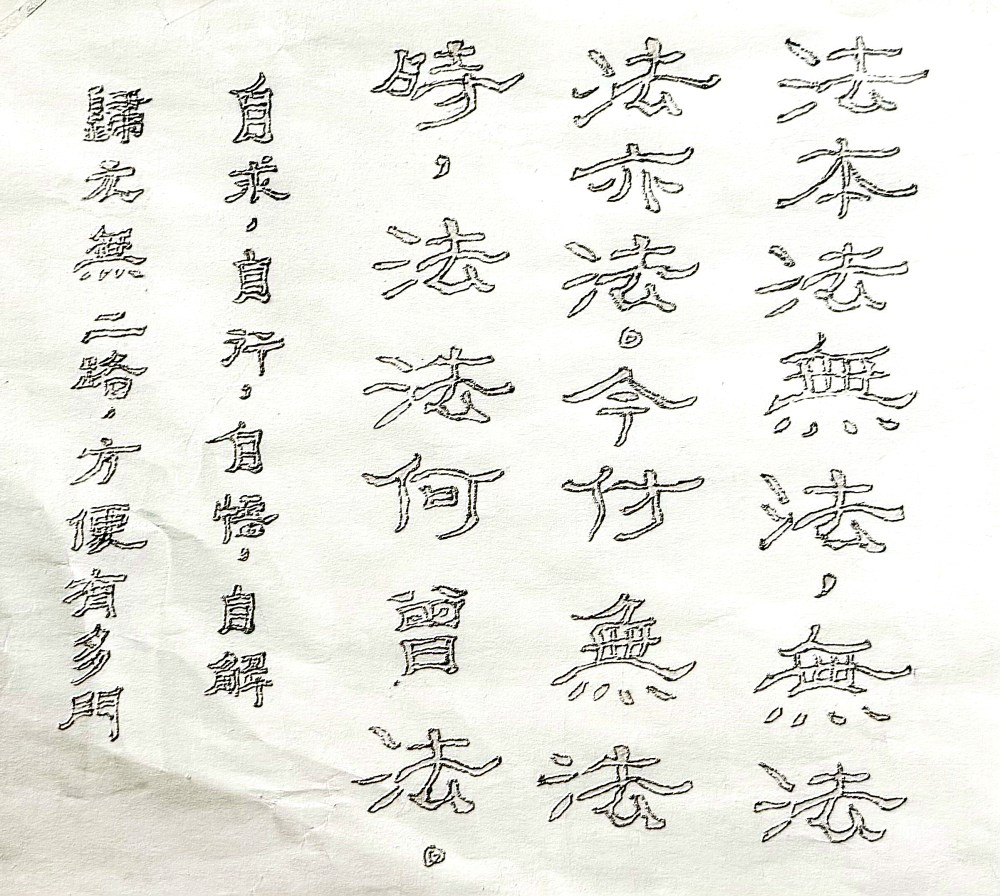 法本法無法，無法
法亦法。今付無法
時，法法何曾法。
自求，自行，自悟，自解
歸元無二路，方便有多門